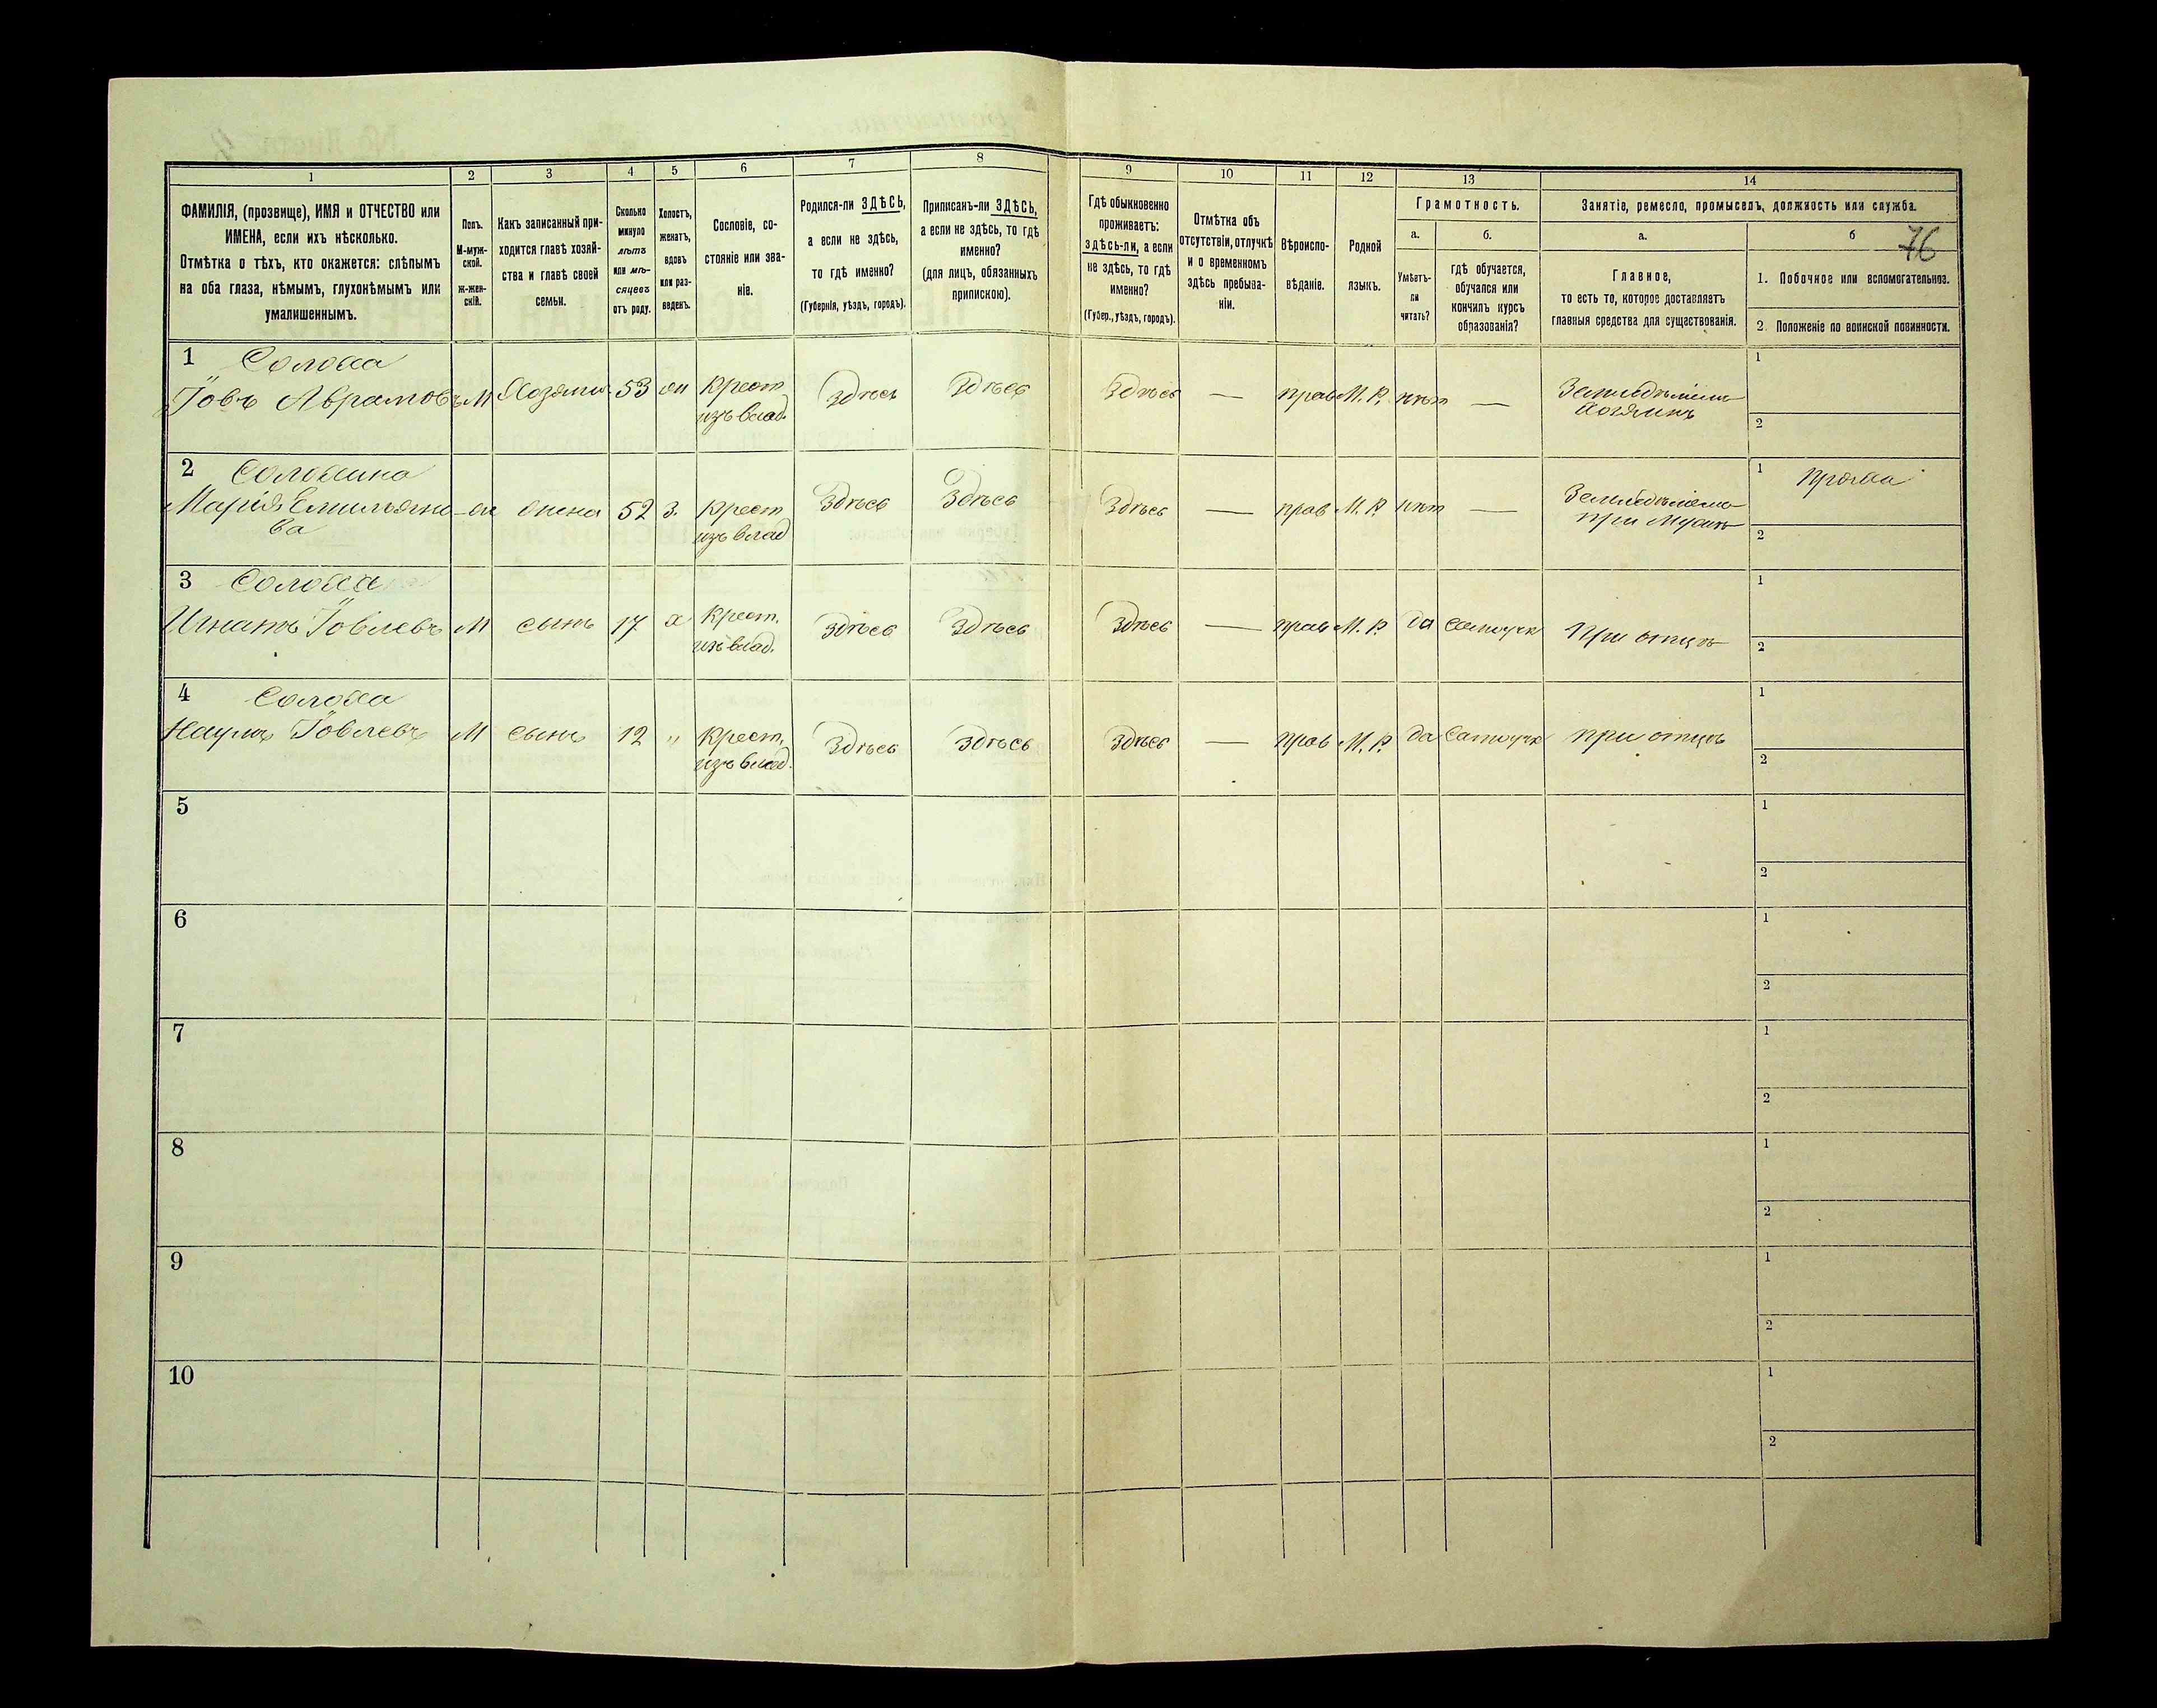 76
1
2
3
4
5
6
7
8
9
10
11
12
13
14
ФАМИЛІЯ, (прозвище), ИМЯ и ОТЧЕСТВО или
ИМЕНА, если ихъ нѣсколько.
Отмѣтка о тѣхъ, кто окажется: слѣпымъ
на оба глаза, нѣмымъ, глухонѣмымъ или
умалишеннымъ.
Полъ.
М-муж-
ской.
ж-жен-
скій.
Какъ записанный при-
ходится главѣ хозяй-
ства и главѣ своей
семьи.
Сколько
минуло
лѣтъ
или мѣ-
сяцевъ
отъ роду.
Холостъ,
женатъ,
вдовъ
или раз-
веденъ.
Сословіе, со-
стояніе или зва-
ніе.
Родился-ли ЗДѢСЬ,
а если не здѣсь,
то гдѣ именно?
(Губернія, уѣздъ, городъ).
Приписанъ-ли ЗДѢСЬ,
а если не здѣсь, то гдѣ
именно?
(для лицъ, обязанныхъ
припискою).
Гдѣ обыкновенно
проживаетъ:
здѣсь-ли, а если
не здѣсь, то гдѣ
именно?
(Губер., уѣздъ, городъ).
Отмѣтка объ
отсутствіи, отлучкѣ
и о временномъ
здѣсь пребыва-
ніи.
Вѣроиспо-
вѣданіе.
Родной
языкъ.
Грамотность.
а.
Умѣетъ-
ли
читать?
б.
гдѣ обучается,
обучался или
кончилъ курсъ
образованія?
Занятіе, ремесло, промыселъ, должность или служба.
а.
Главное,
то есть то, которое доставляетъ
главныя средства для существованія.
б
1. Побочное или вспомогательное.
2. Положеніе по воинской повинности.
1 Солоха
Іовъ Аврамовъ М Хозяинъ 53 ж Крест. здѣсь Здѣсь Здѣсь — прав М. Р. нѣтъ — Земледѣліемъ 1
изъ влад. хозяинъ 2
2 Солошина
Марія Емильяно- ж жена 52 з. Крест Здѣсь Здѣсь Здѣсь — прав М. Р. нѣтъ — 1 Пряха
ва изъ влад при Мужѣ 2
3 Солоха
Игнатъ Іовлевъ М сынъ 17 х Крест. Здѣсь Здѣсь Здѣсь — прав М. Р. да самоучк При отцѣ 1
изъ влад. 2
4 Солоха
Наумъ Іовлевъ М сынъ 12 " Крест. Здѣсь Здѣсь Здѣсь — прав М. Р. да самоучк при отцѣ 1
изъ влад. 2
5 1
2
6 1
2
7 1
2
8 1
2
9 1
2
10 1
2